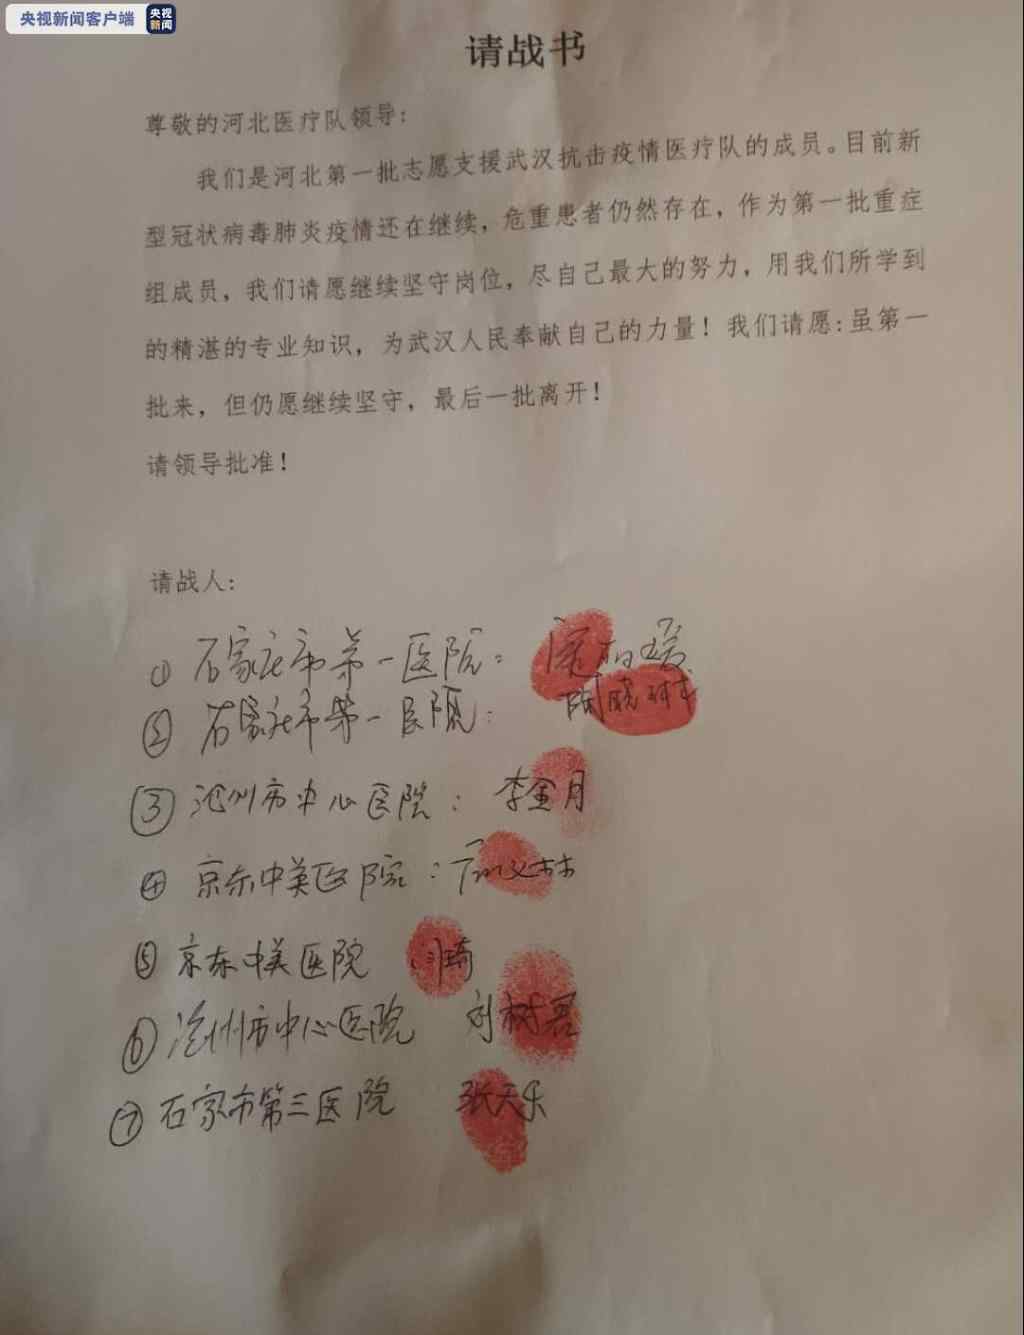 央视新闻客户端 央视新闻
请战书
尊敬的河北医疗队领导：
我们是河北第一批志愿支援武汉抗击疫情医疗队的成员。目前新
型冠状病毒肺炎疫情还在继续，危重患者仍然存在，作为第一批重症
组成员，我们请愿继续坚守岗位，尽自己最大的努力，用我们所学到
的精湛的专业知识，为武汉人民奉献自己的力量！我们请愿：虽第一
批来，但仍愿继续坚守，最后一批离开！
请领导批准！
请战人：
① 石家庄市第一医院：
② 石家庄市第一医院： 陶晓琳
③ 沧州市中心医院： 李金月
④ 京东中美医院：
⑤ 京东中美医院 闫琦
⑥ 沧州市中心医院 刘树君
⑦ 石家市第三医院 张天乐